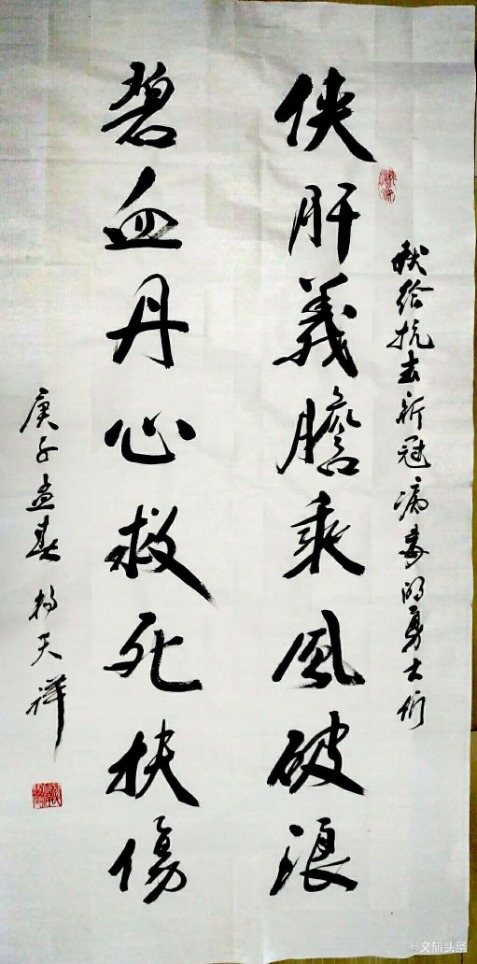 献给抗击新冠病毒的勇士们
侠肝義膽乘風破浪
碧血丹心救死扶傷
庚子孟春 杨天祥
文旅头条